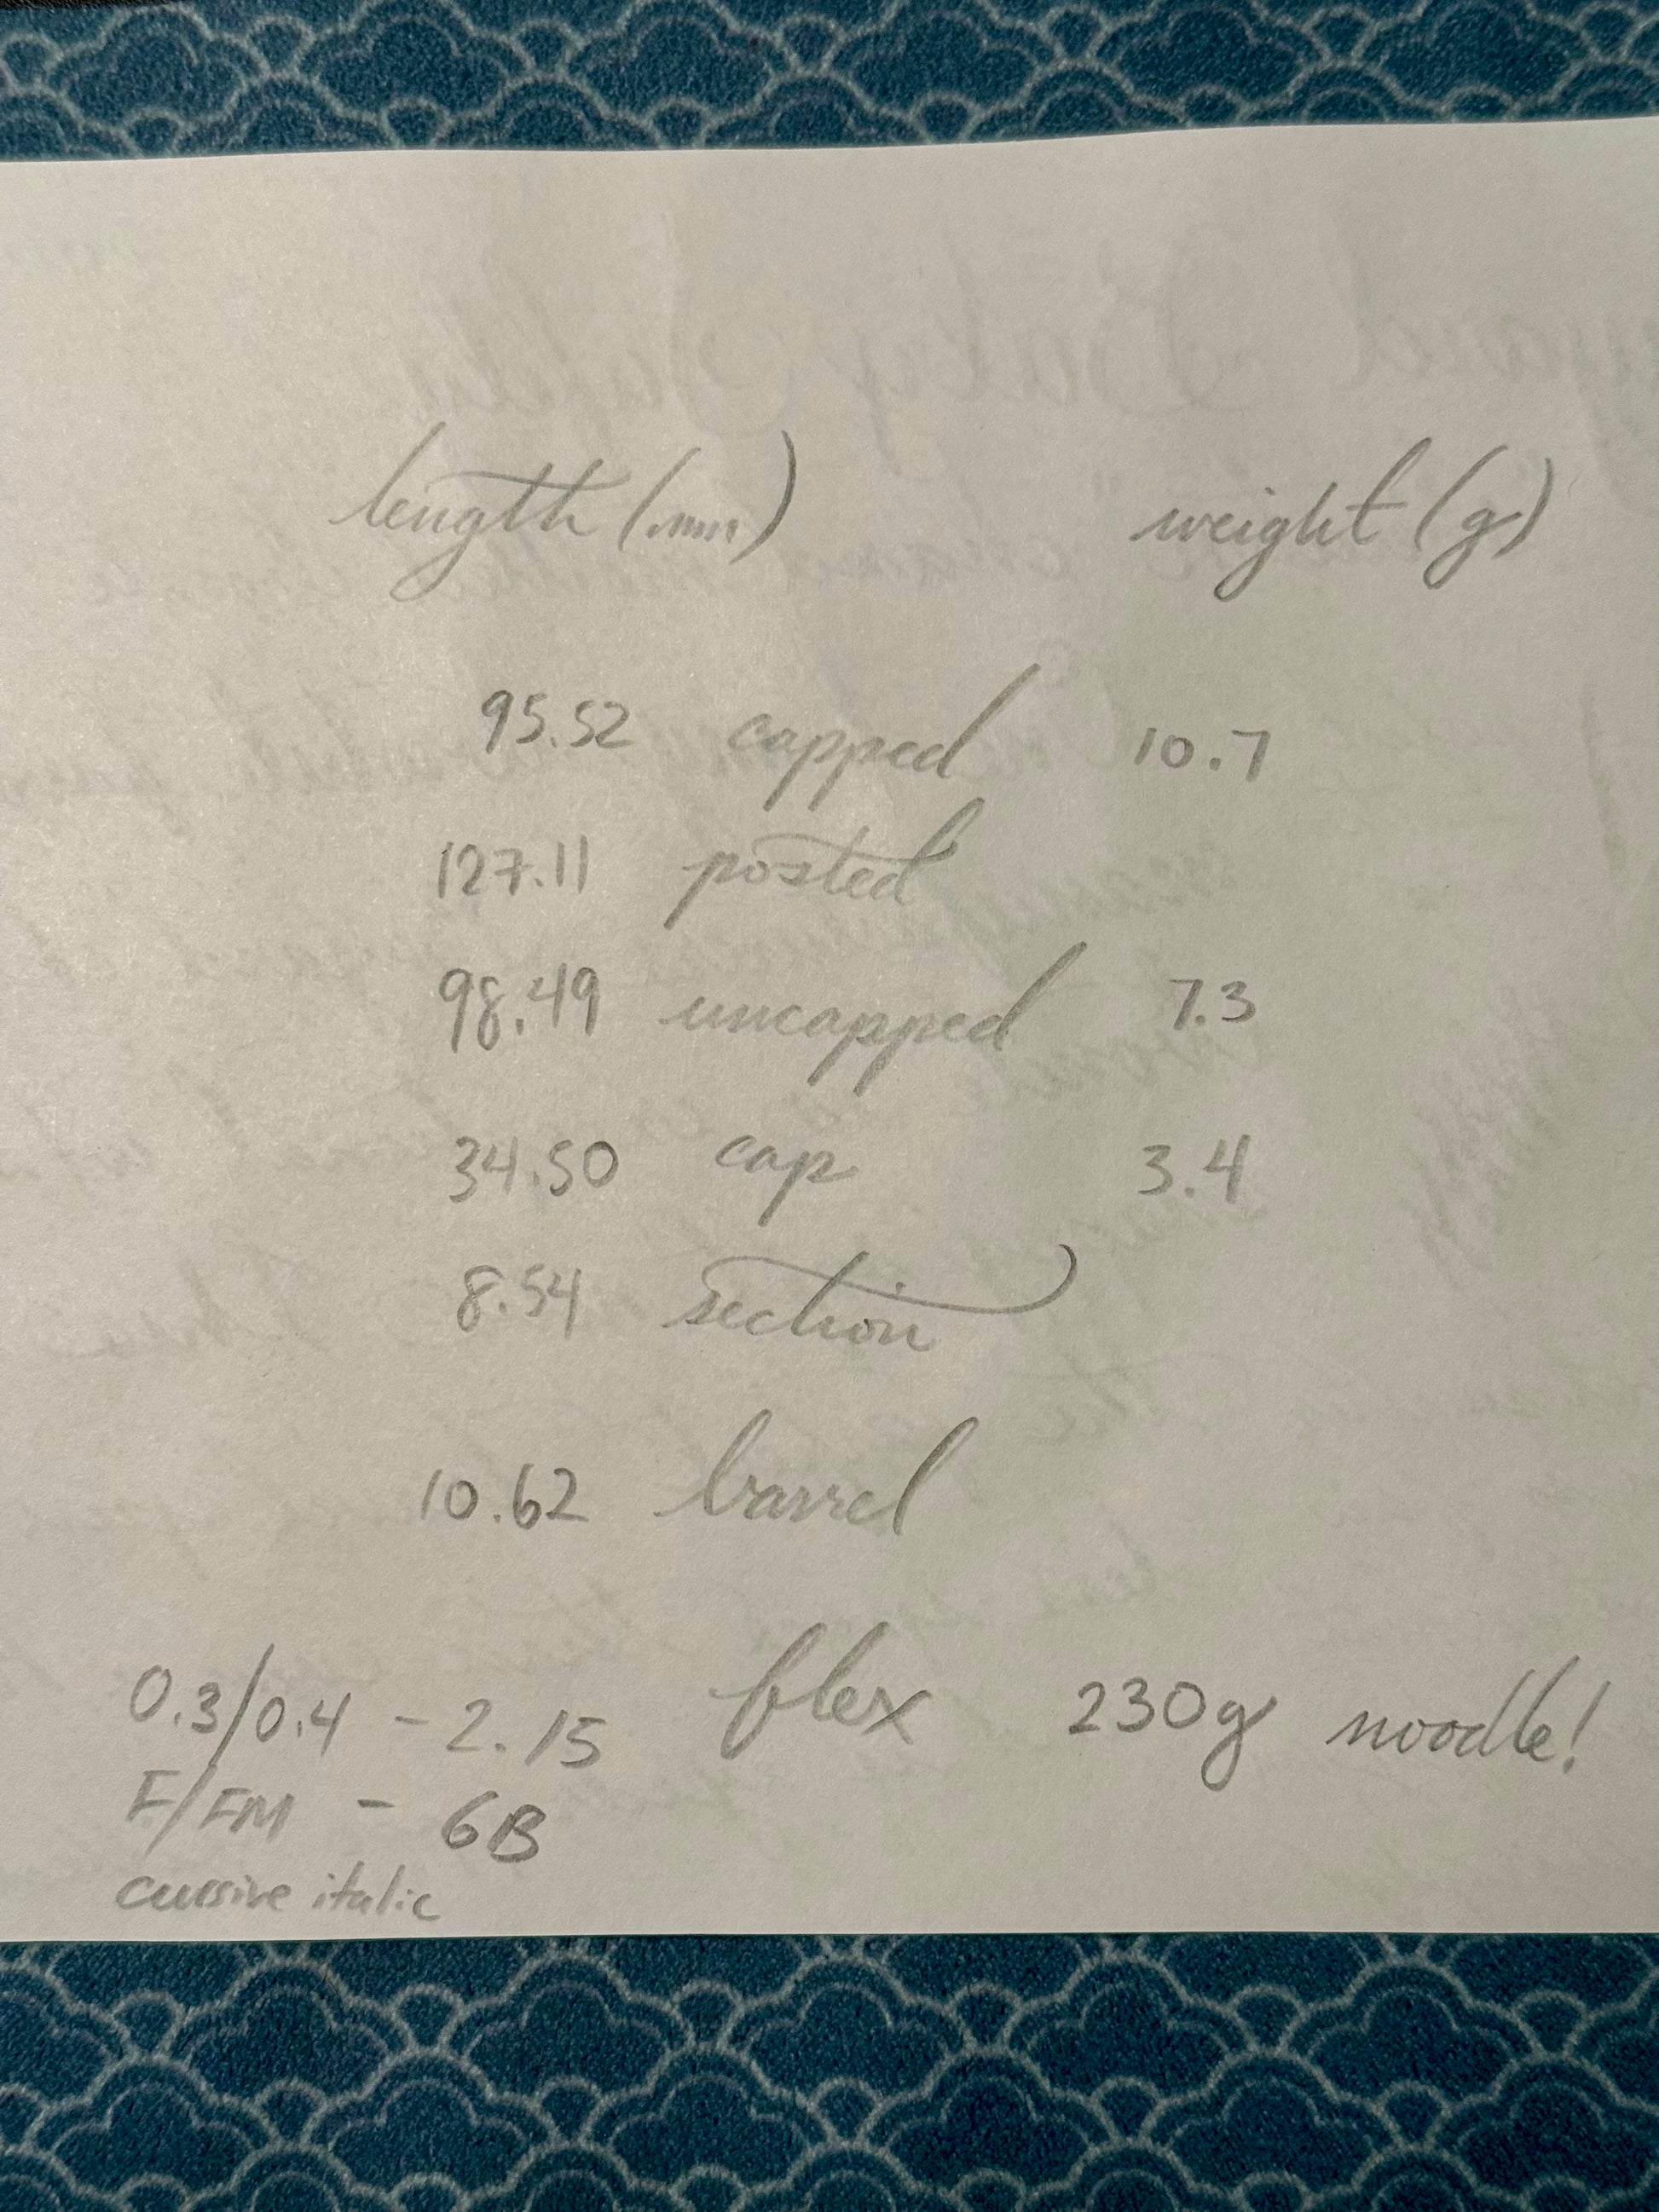 length (mm) weight (g)
95.52 capped 10.7
127.11 posted
98.49 uncapped 7.3
34.50 cap 3.4
8.54 section
10.62 barrel
0.3/0.4 - 2.15 flex 230g noodle!
F/FM - 6B
cursive italic